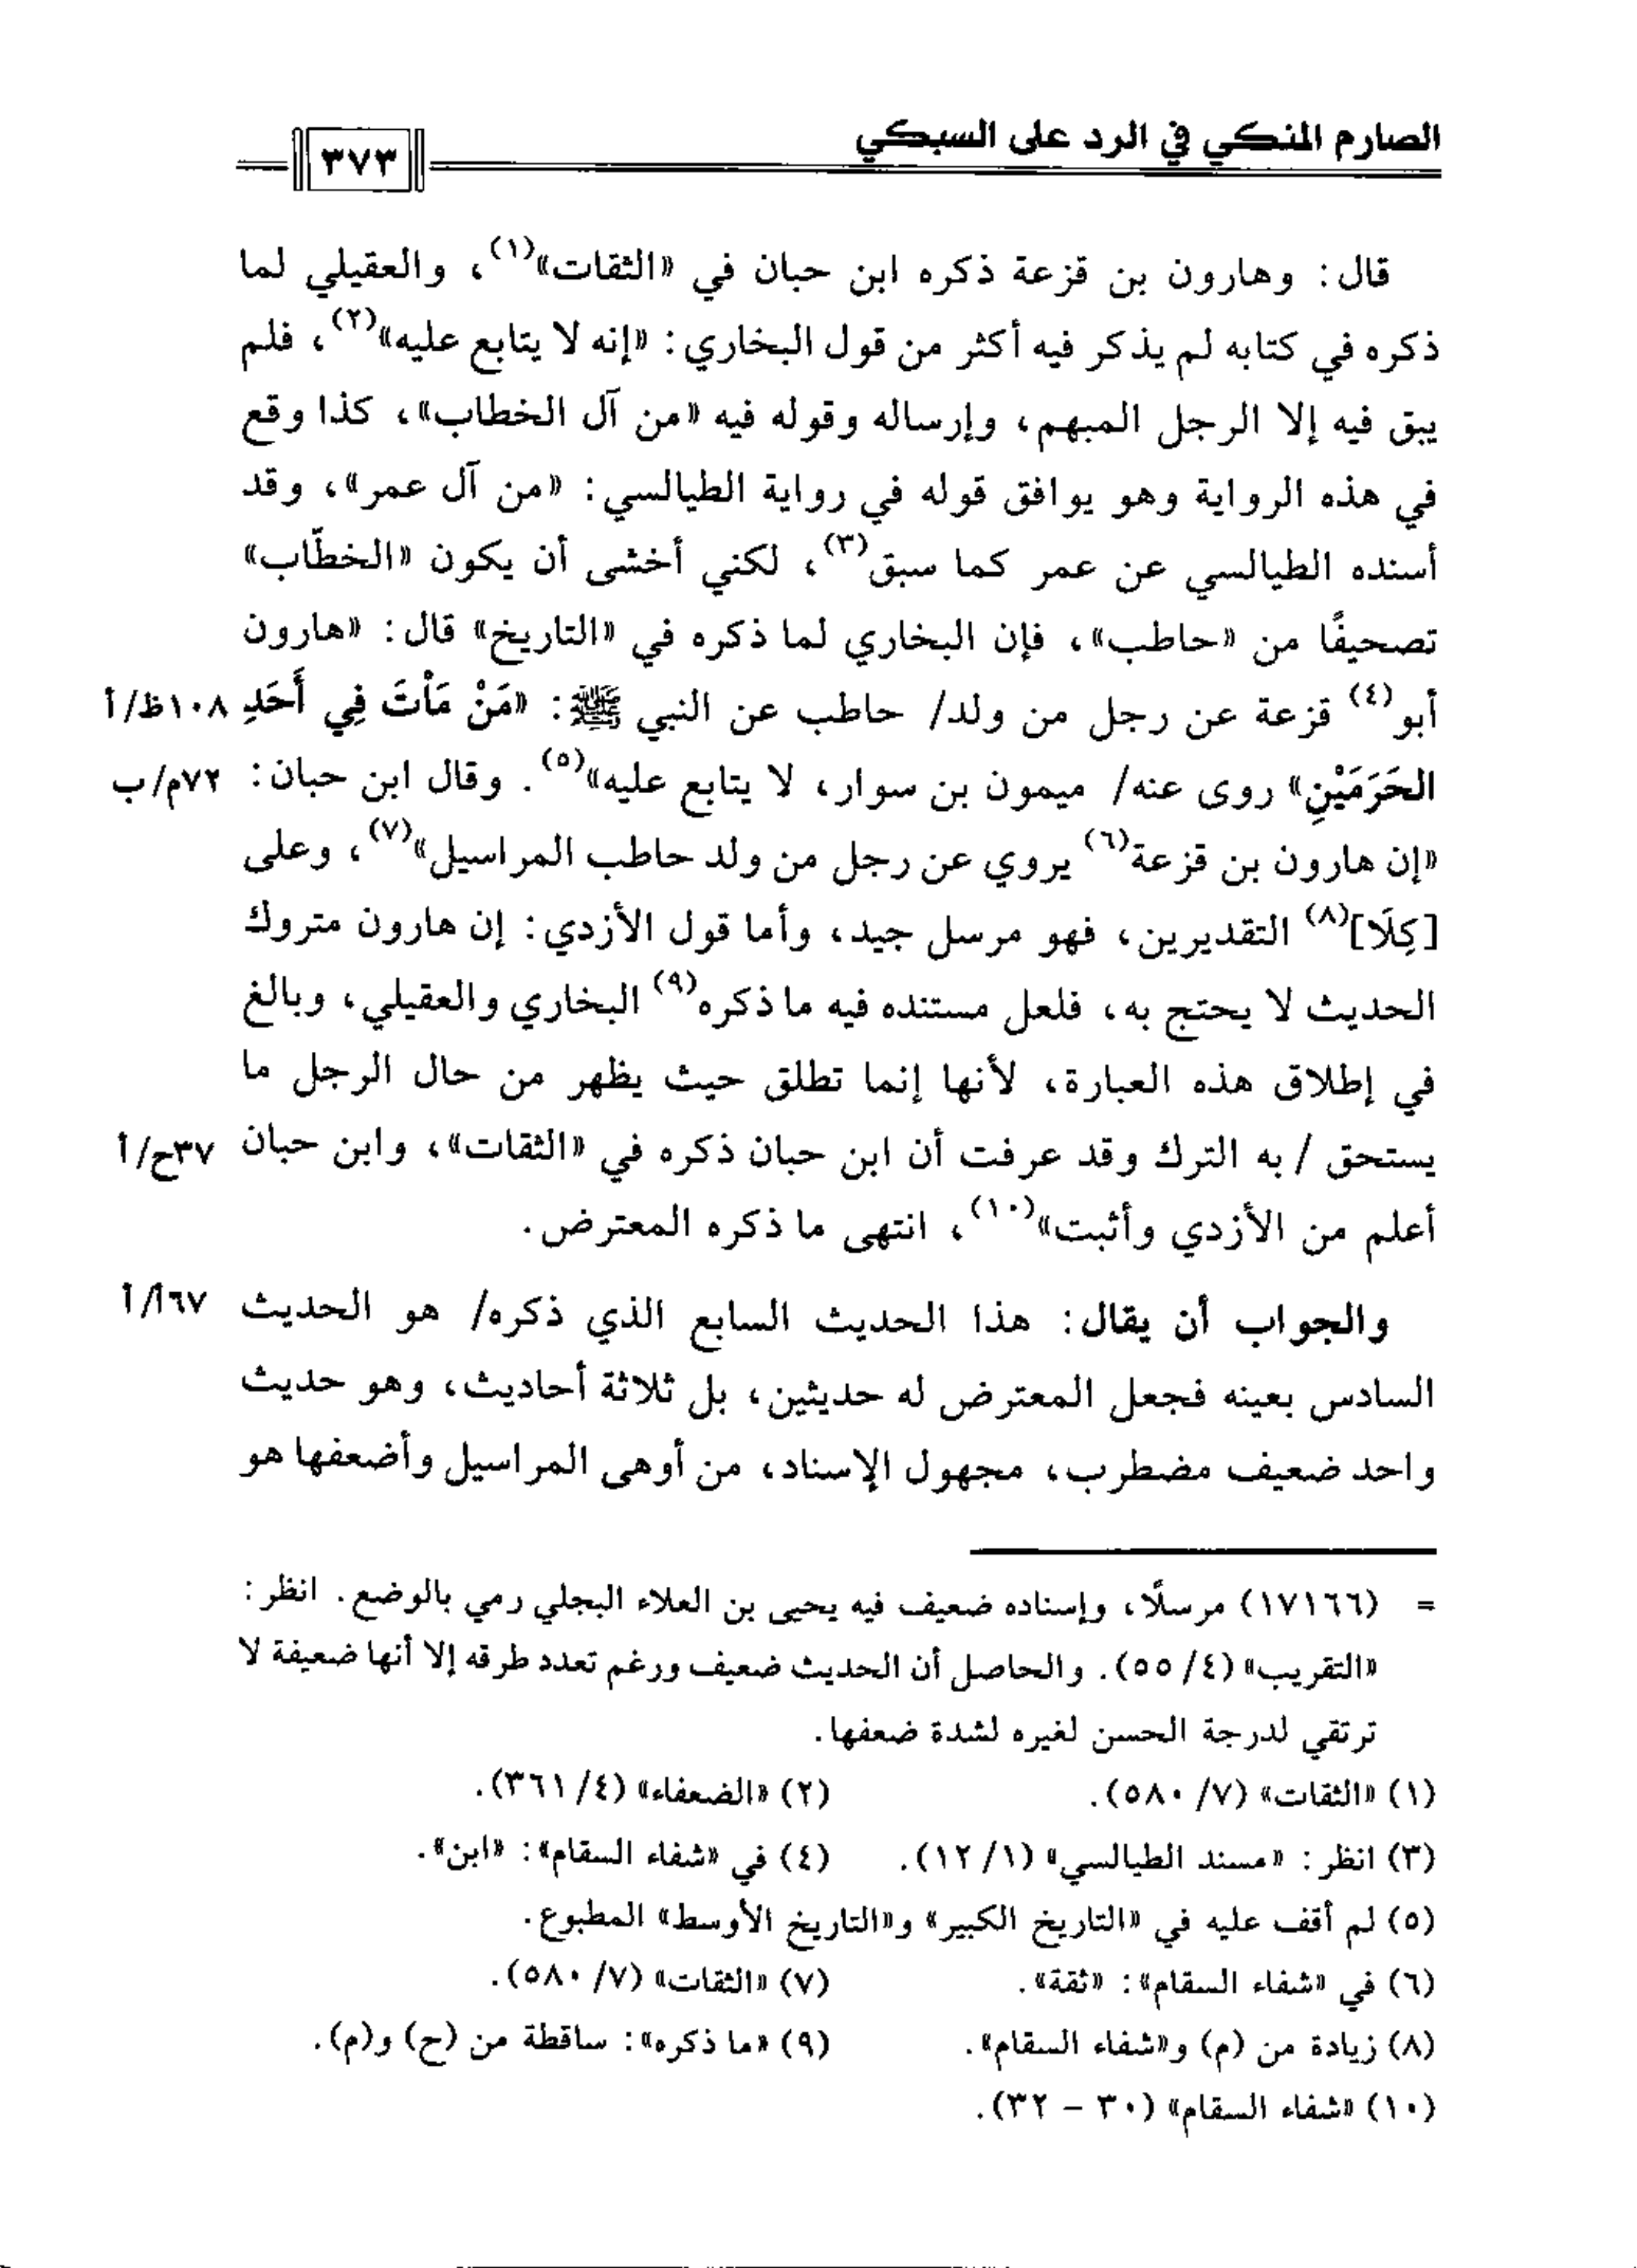 الصارم المنكي في الرد على السبكي
٣٧٣
قال: وهارون بن قزعة ذكره ابن حبان في «الثقات»(١)، والعقيلي لما
ذكره في كتابه لم يذكر فيه أكثر من قول البخاري: «إنه لا يتابع عليه»(٢)، فلم
يبق فيه إلا الرجل المبهم، وإرساله وقوله فيه «من آل الخطاب»، كذا وقع
في هذه الرواية وهو يوافق قوله في رواية الطيالسي: «من آل عمر»، وقد
أسنده الطيالسي عن عمر كما سبق(٣)، لكني أخشى أن يكون «الخطّاب»
تصحيفًا من «حاطب»، فإن البخاري لما ذكره في «التاريخ» قال: «هارون
أبو(٤) قزعة عن رجل من ولد/ حاطب عن النبي ﷺ: «مَنْ مَاْتَ فِي أَحَدِ ١٠٨ظ/أ
الحَرَمَيْنِ» روى عنه/ ميمون بن سوار، لا يتابع عليه»(٥). وقال ابن حبان: ٧٢م/ب
«إن هارون بن قزعة(٦) يروي عن رجل من ولد حاطب المراسيل»(٧)، وعلى
[كِلَا](٨) التقديرين، فهو مرسل جيد، وأما قول الأزدي: إن هارون متروك
الحديث لا يحتج به، فلعل مستنده فيه ما ذكره(٩) البخاري والعقيلي، وبالغ
في إطلاق هذه العبارة، لأنها إنما تطلق حيث يظهر من حال الرجل ما
يستحق / به الترك وقد عرفت أن ابن حبان ذكره في «الثقات»، وابن حبان ٣٧ح/أ
أعلم من الأزدي وأثبت»(١٠)، انتهى ما ذكره المعترض.
والجواب أن يقال: هذا الحديث السابع الذي ذكره/ هو الحديث ٦٧أ/أ
السادس بعينه فجعل المعترض له حديثين، بل ثلاثة أحاديث، وهو حديث
واحد ضعيف مضطرب، مجهول الإسناد، من أوهى المراسيل وأضعفها هو
= (١٧١٦٦) مرسلًا، وإسناده ضعيف فيه يحيى بن العلاء البجلي رمي بالوضع. انظر:
«التقريب» (٤/ ٥٥). والحاصل أن الحديث ضعيف ورغم تعدد طرقه إلا أنها ضعيفة لا
ترتقي لدرجة الحسن لغيره لشدة ضعفها.
(١) «الثقات» (٧/ ٥٨٠). (٢) «الضعفاء» (٤/ ٣٦١).
(٣) انظر: «مسند الطيالسي» (١/ ١٢). (٤) في «شفاء السقام»: «ابن».
(٥) لم أقف عليه في «التاريخ الكبير» و«التاريخ الأوسط» المطبوع.
(٦) في «شفاء السقام»: «ثقة». (٧) «الثقات» (٧/ ٥٨٠).
(٨) زيادة من (م) و«شفاء السقام». (٩) «ما ذكره»: ساقطة من (ح) و(م).
(١٠) «شفاء السقام» (٣٠ - ٣٢).